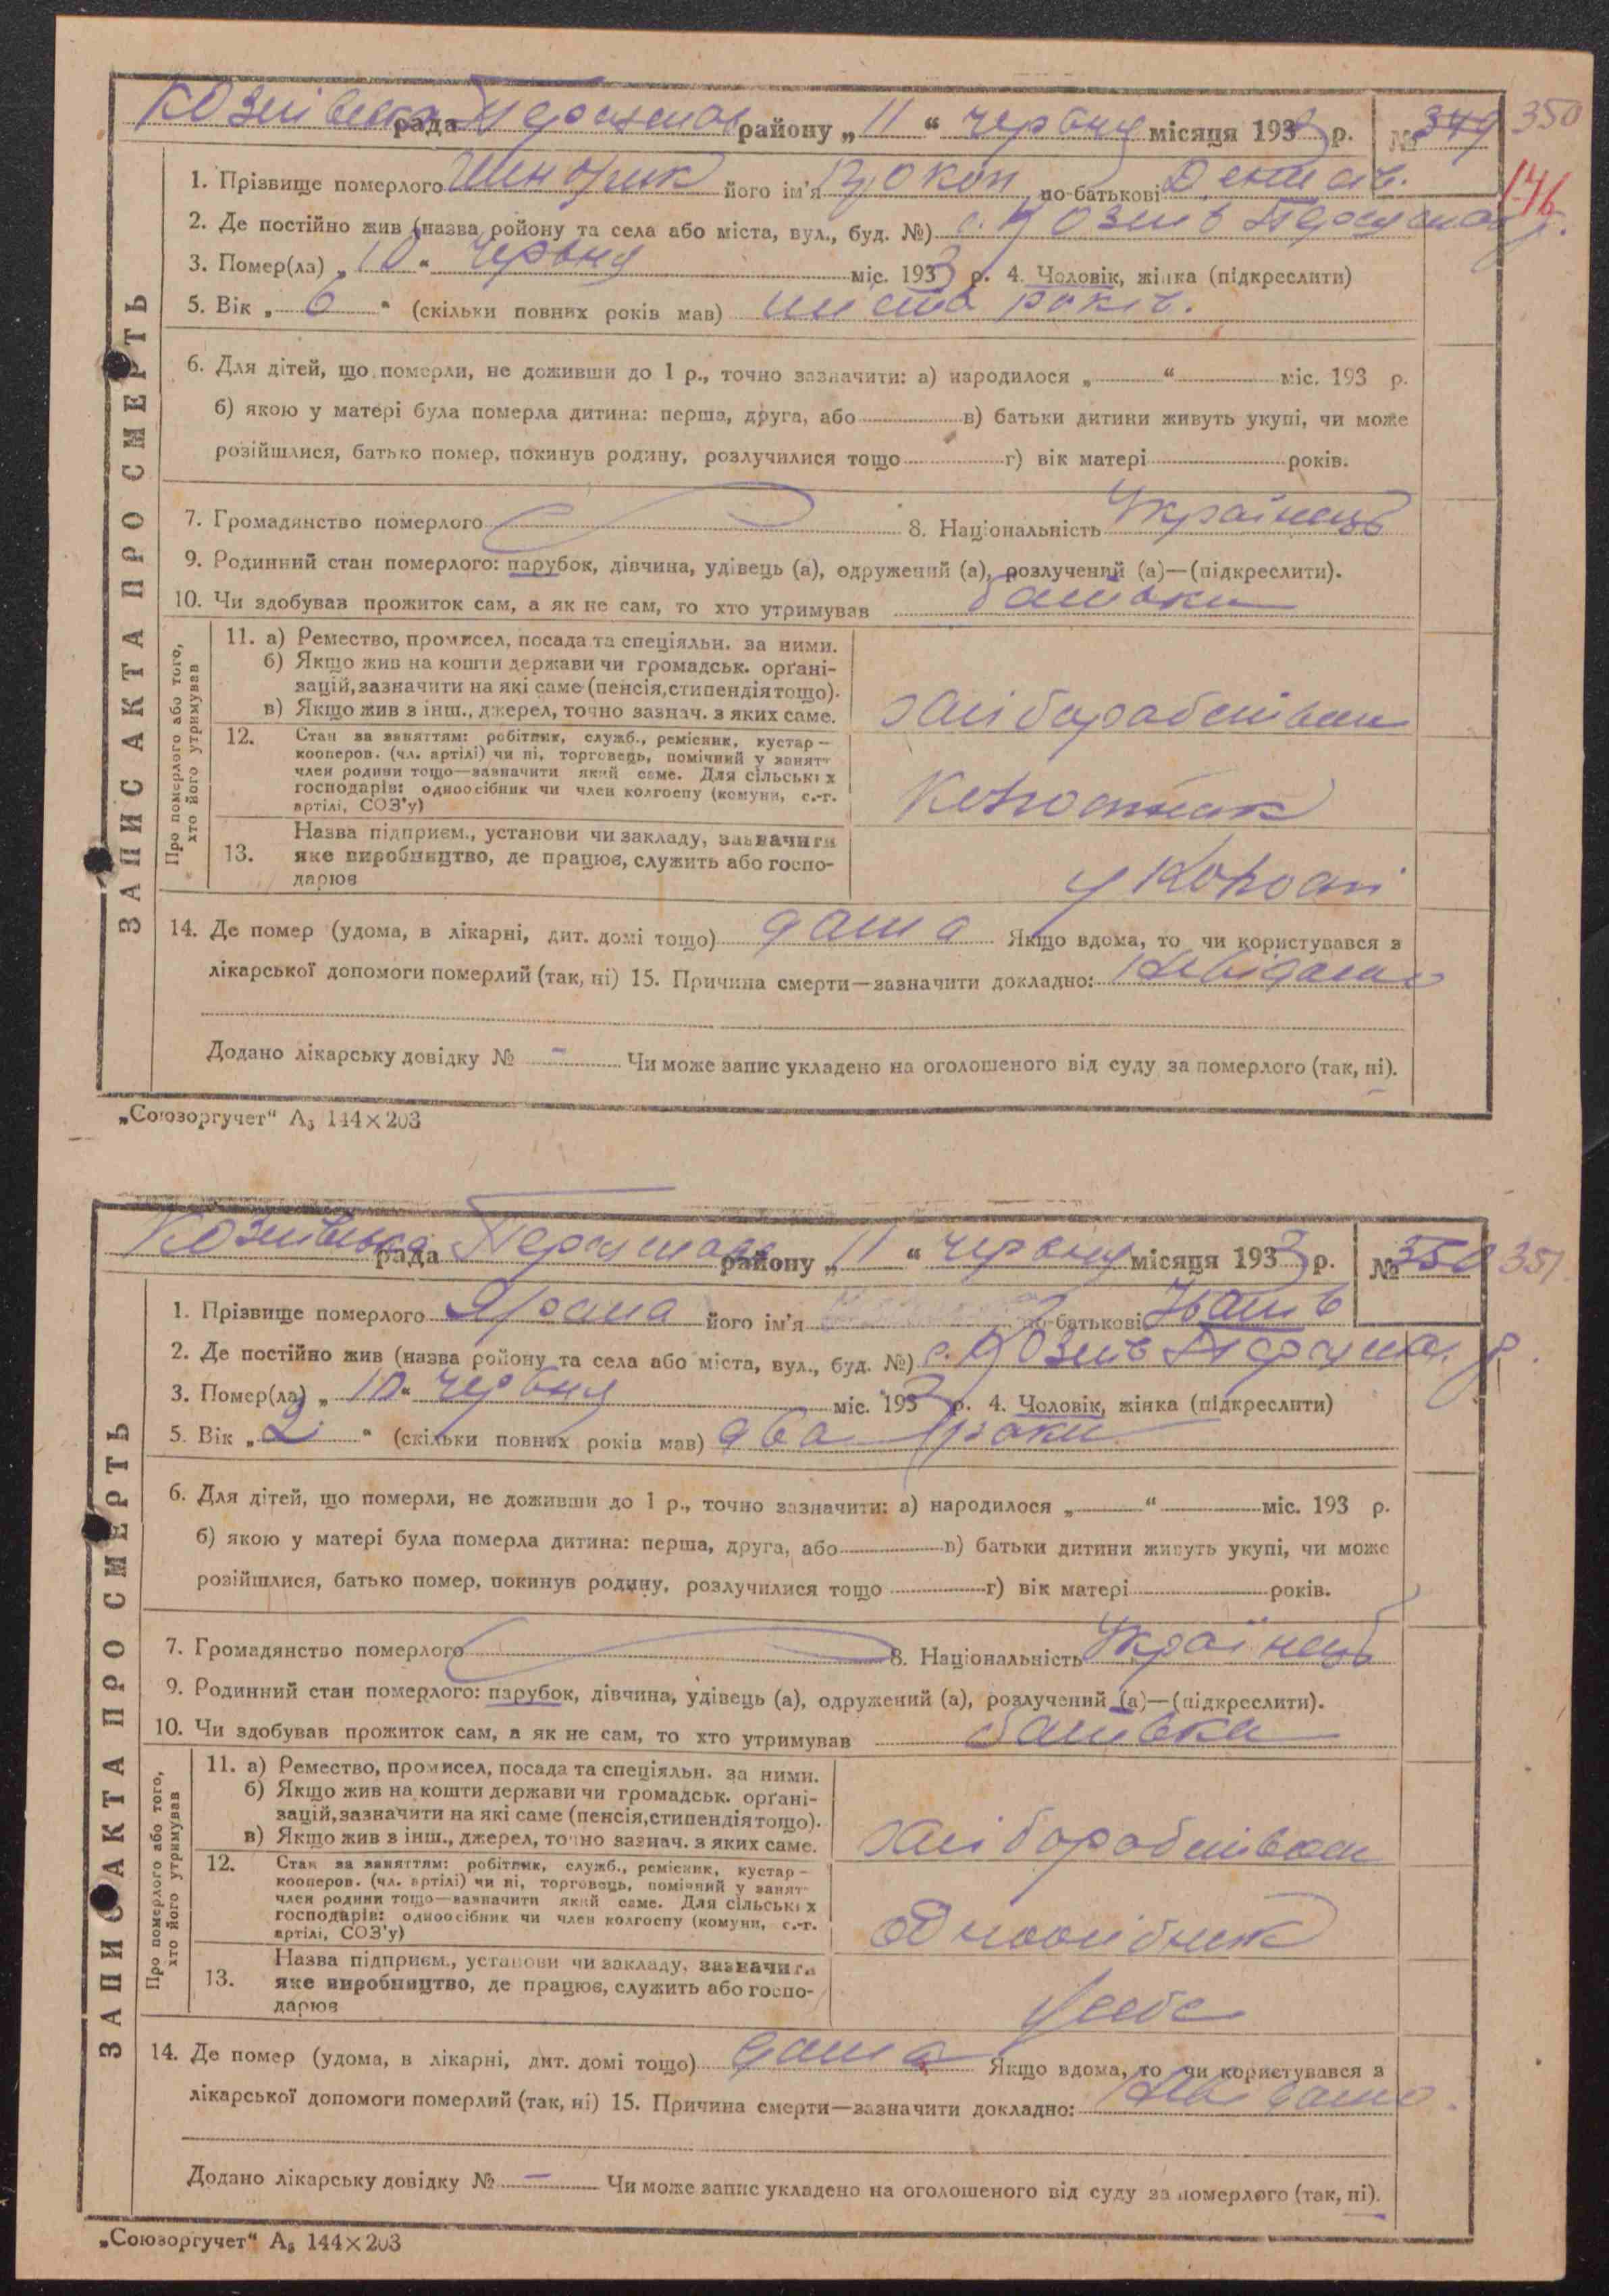 Козіївська рада району „11“ червня місяця 1933 р. № 349 350
146
1. Прізвище померлого його ім'я Прокоп по-батькові
2. Де постійно жив (назва ройону та села або міста, вул., буд. №) с.
3. Помер(ла) „10“ червня міс. 1933 р. 4. Чоловік, жінка (підкреслити)
5. Вік „6“ (скільки повних років мав) шість років.
6. Для дітей, що померли, не доживши до 1 р., точно зазначити: а) народилося „ “ міс. 193 р.
б) якою у матері була померла дитина: перша, друга, або в) батьки дитини живуть укупі, чи може
розійшлися, батько помер, покинув родину, розлучилися тощо г) вік матері років.
7. Громадянство померлого 8. Національність Українець
9. Родинний стан померлого: парубок, дівчина, удівець (а), одружений (а), розлучений (а)—(підкреслити).
10. Чи здобував прожиток сам, а як не сам, то хто утримував батьки
ЗАПИС АКТА ПРО СМЕРТЬ
Про померлого або того, хто його утримував
11. а) Ремество, промисел, посада та спеціяльн. за ними.
б) Якщо жив на кошти держави чи громадськ. орґані-
зацій, зазначити на які саме (пенсія, стипендія тощо).
в) Якщо жив з інш., джерел, точно зазнач. з яких саме.
12. Стан за заняттям: робітник, служб., ремісник, кустар—
кооперов. (чл. артілі) чи ні, торговець, помічний у занят
член родини тощо—зазначити який саме. Для сільських
господарів: одноосібник чи член колгоспу (комуни, с.-г.
артілі, СОЗ'у)
13. Назва підприєм., установи чи закладу, зазначити
яке виробництво, де працює, служить або госпо-
дарює
14. Де помер (удома, в лікарні, дит. домі тощо) дома Якщо вдома, то чи користувався з
лікарської допомоги померлий (так, ні) 15. Причина смерти—зазначити докладно: Невідомо
Додано лікарську довідку № - Чи може запис укладено на оголошеного від суду за померлого (так, ні).
„Союзоргучет“ А₅ 144×203
Козіївська рада району „11“ червня місяця 1933 р. № 350 351
1. Прізвище померлого його ім'я по-батькові Іванів
2. Де постійно жив (назва ройону та села або міста, вул., буд. №) с.
3. Помер(ла) „10“ червня міс. 1933 р. 4. Чоловік, жінка (підкреслити)
5. Вік „2“ (скільки повних років мав) два роки
6. Для дітей, що померли, не доживши до 1 р., точно зазначити: а) народилося „ “ міс. 193 р.
б) якою у матері була померла дитина: перша, друга, або в) батьки дитини живуть укупі, чи може
розійшлися, батько помер, покинув родину, розлучилися тощо г) вік матері років.
7. Громадянство померлого 8. Національність Українець
9. Родинний стан померлого: парубок, дівчина, удівець (а), одружений (а), розлучений (а)—(підкреслити).
10. Чи здобував прожиток сам, а як не сам, то хто утримував батьки
ЗАПИС АКТА ПРО СМЕРТЬ
Про померлого або того, хто його утримував
11. а) Ремество, промисел, посада та спеціяльн. за ними.
б) Якщо жив на кошти держави чи громадськ. орґані-
зацій, зазначити на які саме (пенсія, стипендія тощо).
в) Якщо жив з інш., джерел, точно зазнач. з яких саме.
12. Стан за заняттям: робітник, служб., ремісник, кустар—
кооперов. (чл. артілі) чи ні, торговець, помічний у занят
член родини тощо—зазначити який саме. Для сільських
господарів: одноосібник чи член колгоспу (комуни, с.-г.
артілі, СОЗ'у)
одноосібник
13. Назва підприєм., установи чи закладу, зазначити
яке виробництво, де працює, служить або госпо-
дарює
У себе
14. Де помер (удома, в лікарні, дит. домі тощо) дома Якщо вдома, то чи користувався з
лікарської допомоги померлий (так, ні) 15. Причина смерти—зазначити докладно: Невідомо.
Додано лікарську довідку № - Чи може запис укладено на оголошеного від суду за померлого (так, ні).
„Союзоргучет“ А₅ 144×203